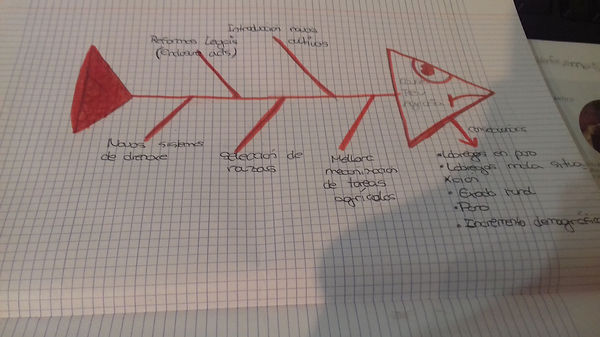 Reformas Legais
(Enclosure acts)
Introducion novos
cultivos
Novos sistemas
de drenaxe
Selección de
razas
Mellora
mecanización
de tarefas
agrícolas
Consecuencias
• Labregos en paro
• Labregos mala situa
xción
• Exodo rural
• Paro
• Incremento demográfico